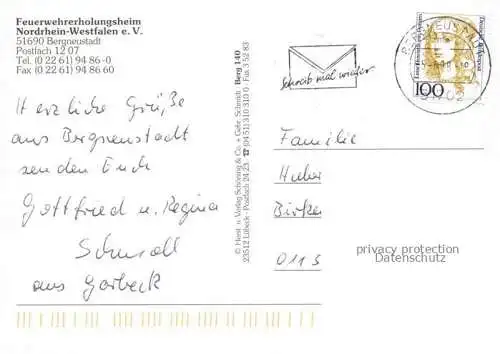 Feuerwehrerholungsheim
Nordrhein-Westfalen e. V.
51690 Bergneustadt
Postfach 12 07
Tel. (0 22 61) 94 86-0
Fax (0 22 61) 94 86 60
Herzliche Grüße
aus Bergneustadt
senden Euch
Gottfried u. Regina
Schmoll
aus Garbeck
© Horst u. Verlag Schöning & Co. + Gebr. Schmidt Berg 140
23512 Lübeck - Postfach 24 23 ☎ (04 51) 310 310 0 - Fax 3 52 83
Schreib mal wieder
Deutsche Bundespost
100
BERGNEUSTADT
51702
Familie
Huber
Birken
privacy protection
Datenschutz